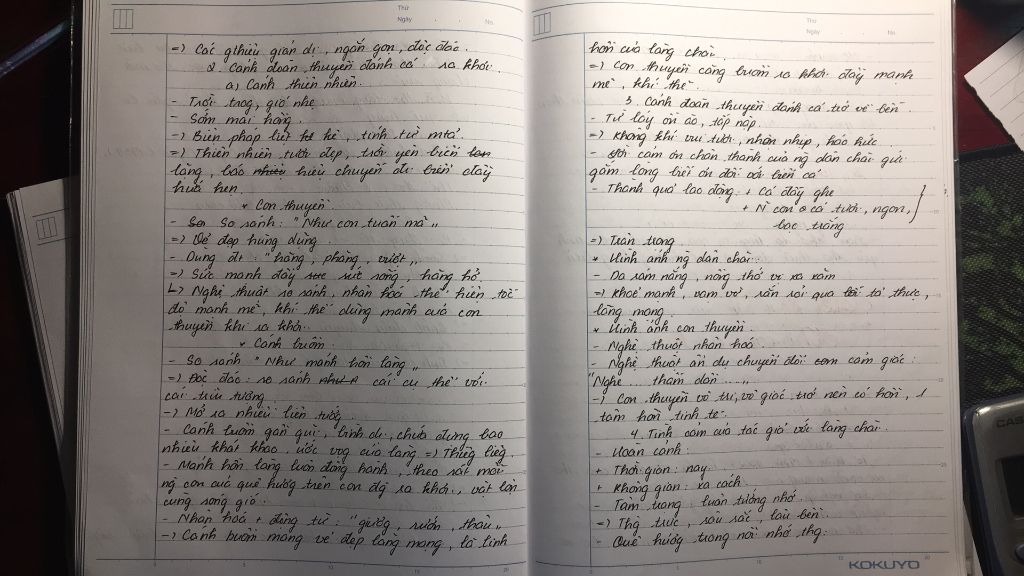 Thứ
Ngày . . No.
=) Các ghthiệu giản dị, ngắn gọn, độc đáo.
2. Cảnh đoàn thuyền đánh cá ra khơi.
a) Cảnh thiên nhiên
- Trời trog, gió nhẹ
- Sớm mai hồng.
-) Biện pháp liệt kê, tính từ mtả.
=) Thiên nhiên tươi đẹp, trời yên biển
lặng, báo hiệu chuyến đi biển đầy
hứa hẹn.
* Con thuyền:
- So sánh: "Như con tuấn mã"
=) Vẻ đẹp hùng dũng.
- Dùng đt: "hăng, phăng, vượt"
=) Sức mạnh đầy sức sống, hăng hở
↳) Nghệ thuật so sánh, nhân hoá thể hiện tốc
độ mạnh mẽ, khí thế dũng mãnh của con
thuyền khi ra khơi.
* Cánh buồm:
- So sánh "Như mảnh hồn làng"
=) Độc đáo: so sánh cái cụ thể với
cái trừu tượng
-) Mở ra nhiều liên tưởng
- Cánh buồm gần gũi, bình dị, chứa đựng bao
nhiêu khát khao, ước vọg của làng =) Thiêng liêg
- Mảnh hồn làng luôn đồng hành, theo sát mỗi
ng con quê hương trên con đg ra khơi, vật lộn
cùng sóng gió.
- Nhân hoá + động từ: "giướg, rướn, thâu"
-) Cánh buồm mang vẻ đẹp lãng mạng, là linh
Thứ
Ngày . . No.
hồn của làng chài.
=) Con thuyền căng buồm ra khơi đầy mạnh
mẽ, khí thế.
3. Cảnh đoàn thuyền đánh cá trở về bến.
- Từ láy ồn ào, tấp nập.
=) Không khí vui tươi, nhộn nhịp, háo hức.
- Lời cảm ơn chân thành của ng dân chài gửi
gắm lòng biết ơn đối với biển cả
- Thành quả lao động: + Cá đầy ghe
+ N con cá tươi, ngon,
bạc trắng
=) Trân trọng
* Hình ảnh ng dân chài:
- Da rám nắng, nồng thở vị xa xăm
=) Khoẻ mạnh, vạm vỡ, rắn rỏi qua tả thực,
lãng mạng.
* Hình ảnh con thuyền:
- Nghệ thuật nhân hoá
- Nghệ thuật ẩn dụ chuyển đổi cảm giác:
"Nghe ... thấm dần ...."
-) Con thuyền vô tri, vô giác trở nên có hồn, 1
tâm hồn tinh tế.
4. Tình cảm của tác giả với làng chài.
- Hoàn cảnh:
+ Thời gian: nay
+ Không gian: xa cách
- Tâm trạng: luôn tưởng nhớ
=) Thg trực, sâu sắc, lâu bền.
- Quê hươg trong nỗi nhớ thg:
KOKUYO
CAS